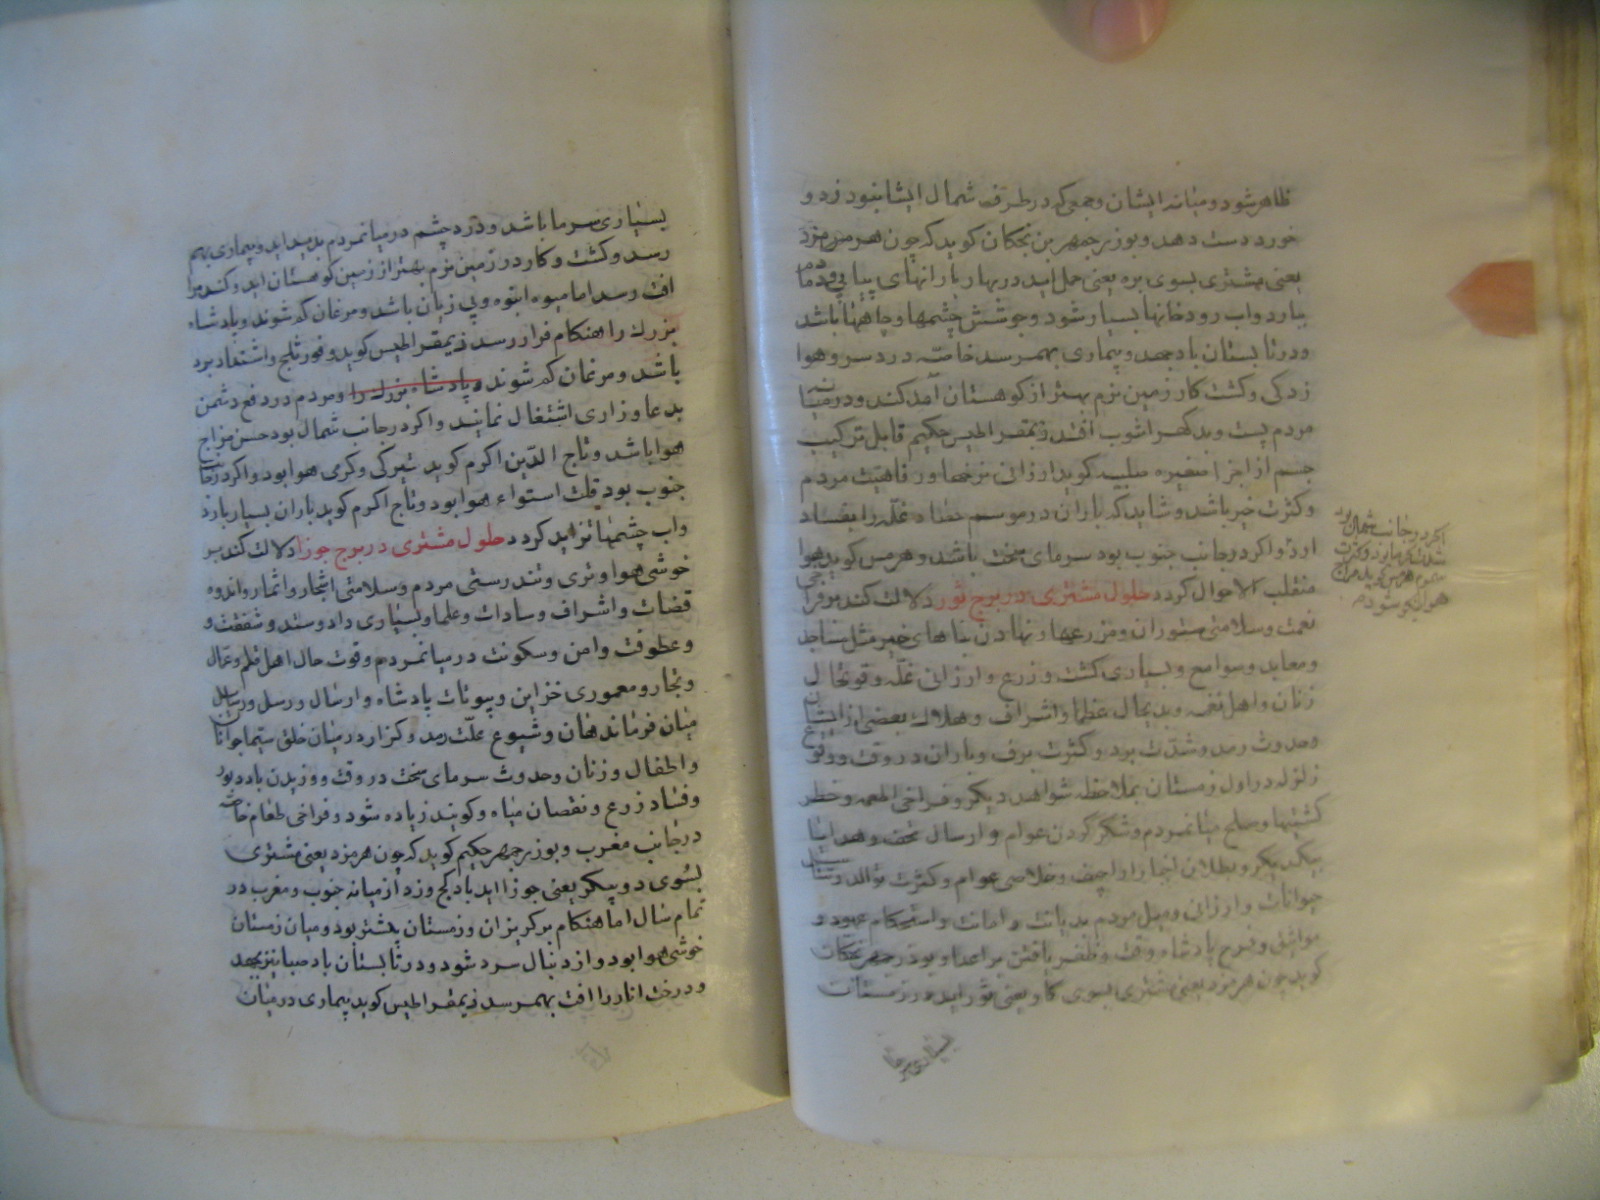 ظاهر شود و میانه ایشان و جمعی که در طرف شمال ایشانبود زد و
خورد دست دهد و بوزرجمهر بن بختکان کوید که چون هرمزد
یعنی مشتری بسوی بره یعنی حمل اید در بهار بارانهای پیاپی
ببارد واب رودخانها بسیار شود و جوشش چشمها و چاهها باشد
و در تابستان باد جهد و بیماری بهمرسد خاصه درد سر و هوا
زدکی و کشت کار زمین نرم بهتر از کوهستان آمد کند و در میانه
مردم پست و بد کهر اشوب افتد ذیمقراطیس حکیم قابل ترکیب
جسم از اجزا صغیره صلبیه کوید ارزانی نرخها و رفاهیت مردم
و کثرت خیر باشد و شاید که باران در موسم حصاد غله را بفساد
ارد و اکر در جانب جنوب بود سرمای سخت باشد و هرمس کوید هوا
منقلب الاحوال کردد حلول مشتری در برج ثور دلالت کند بر فراخی
نعمت و سلامتی ستوران و مزرعها و نهادن بناهای خیر مثل مساجد
و معابد و صوامع و بسیاری کشت و زرع و ارزانی غله و قوتحال
زنان و اهل نغمه و بدیحال عظما و اشراف و هلاک بعضی از ایشان
و حدوث رمد و شدت برد و کثرت برف و باران در وقت و وقوع
زلزله در اول زمستان بملاحظه شواهد دیکر و فراخی اطعمه و خطر
کشتیها و صلح میانمردم و شکر کردن عوام و ارسال تحف و هدایا
بیکدیکر و بطلان اخبار اراجیف و خلاصی عوام و کثرت توالد و تناسل
حیوانات و ارزانی و میل مردم بدیانت و امانت و استحکام عهود و
مواثیق و فرح پادشاه وقت و ظفر یافتن بر اعدا و بوزرجمهر بختکان
کوید چون هرمزد یعنی مشتری بسوی کاو یعنی ثور اید در زمستان
بسیاری سرما
اکر در جانب شمال بود
شدت کرما بود و کثرت
هرمس کوید مزاج
هوا نیکو شود
بسیاری سرما باشد و درد چشم در میانمردم بدید اید و بیماری بهم
رسد و کشت و کار در زمین نرم بهتر از زمین کوهستان اید و کندم را
افت رسد اما میوه انبوه و بی زیان باشد و مرغان کم شوند و پادشاه
بزرک را هنکام فرار رسد ذیمقراطیس کوید وفور ثلج و اشتداد برد
باشد و مرغان کم شوند و پادشاه بزرک را و مردم در دفع دشمن
بدعا و زاری اشتغال نمایند و اکر در جانب شمال بود حسن مزاج
هوا باشد و تاج الدین اکرم کوید تیرکی و کرمی هوا بود و اکر در جانب
جنوب بود قلت استواء هوا بود و تاج اکرم کوید باران بسیار بارد
واب چشمها تزاید کردد حلول مشتری در برج جوزا دلالت کند بر
خوشی هوا و تری و تندرستی مردم و سلامتی اشجار و اثمار و اندوه
قضات و اشراف و سادات و علما و بسیاری داد و ستد و شفقت و
و عطوفت و امن و سکونت در میانمردم و قوت حال اهل قلم و عمال
و تجار و معموری خزاین و بیوتات پادشاه و ارسال و رسل و رسایل
میان فرماندهان و شیوع علت رمد و کزار در میان خلق سیما جوانان
و اطفال و زنان و حدوث سرمای سخت در وقت و وزیدن باد دبور
و فساد زرع و نقصان میاه و کویند زیاده شود و فراخی طعام خاصه
در جانب مغرب و بوزرجمهر حکیم کوید که چون هرمزد یعنی مشتری
بسوی دوپیکر یعنی جوزا اید باد کج وزد از میانه جنوب و مغرب در
تمام سال اما هنکام برکریزان و زمستان بیشتر بود و میان زمستان
خوشی هوا بود و از دنبال سرد شود و در تابستان باد صبا نیز جهد
و درخت انار را افت بهمرسد ذیمقراطیس کوید بیماری در میان